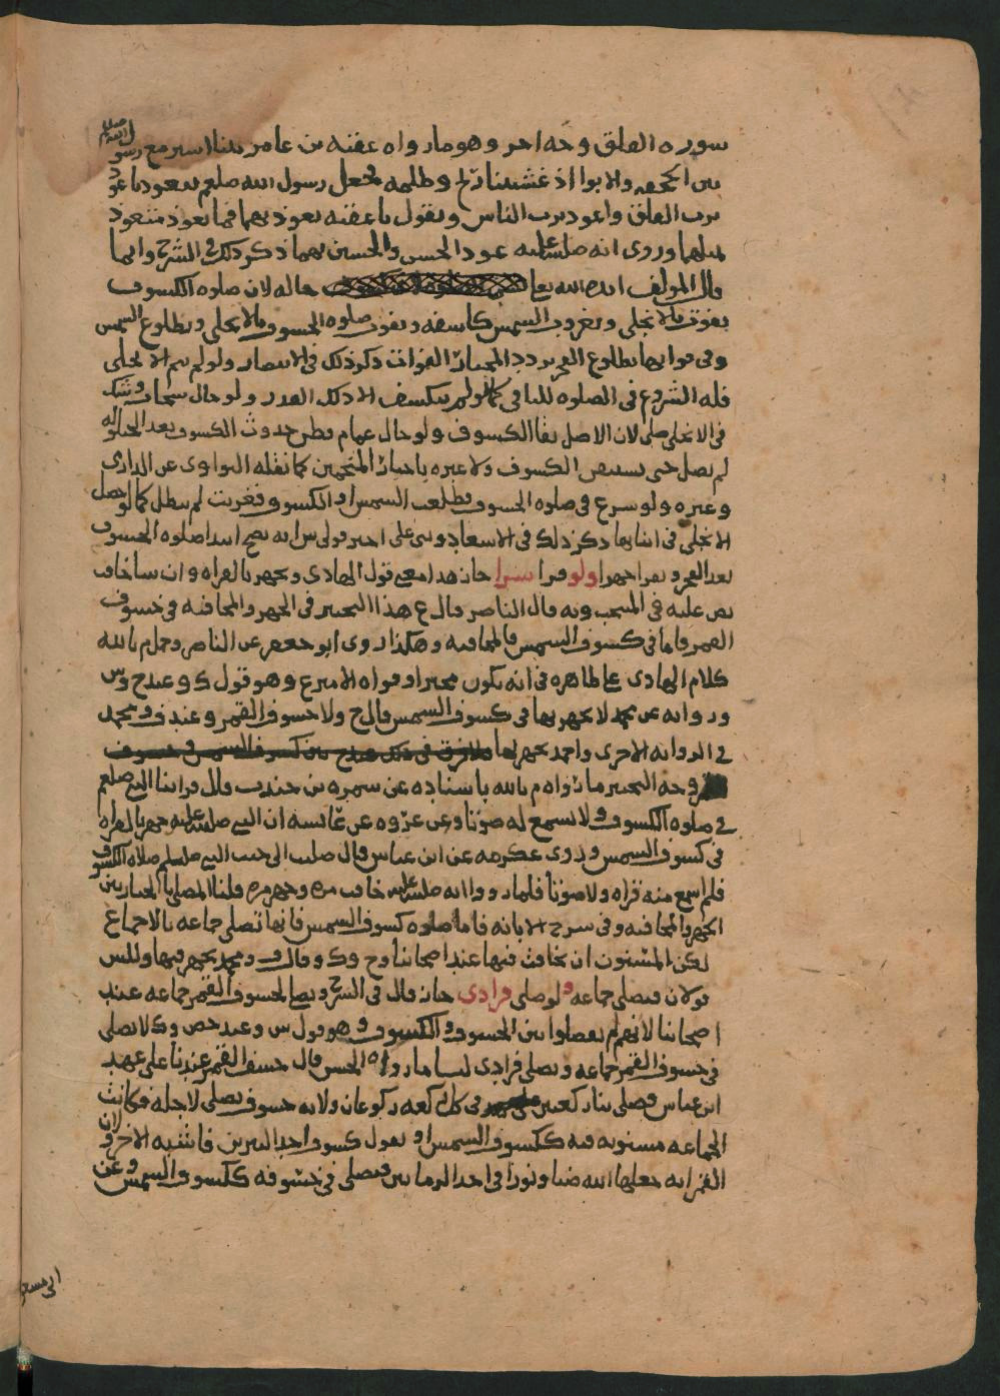 سورة الفلق وجه اخر وهو مارواه عقبه بن عامر بينا اسير مع رسول الله صلعم
بين الجحفه والابوا اذ غشيتنا ريح وظلمه فجعل رسول الله صلعم يتعوذ باعوذ
برب الفلق واعوذ برب الناس ويقول ياعقبه تعوذ بهما فما تعوذ متعوذ
بمثلهما وروى انه صلى الله عليه عوذ الحسن والحسين بهما ذكر ذلك في الشرح وانما
قال المولف ايده الله تعالى حاله لان صلوه الكسوف
تفوت بالانجلى وبغروب الشمس كاسفه وتفوت صلوه الخسوف بالانجلى وبطلوع الشمس
وفي فواتها بطلوع الفجر تردد المختار الفوات ذكر ذلك في الانتصار ولو لم يتم الانجلى
فله الشروع في الصلوه للباقي كما لو لم ينكسف الا ذلك القدر ولو حال سحاب وشك
في الانجلى صلى لان الاصل بقا الكسوف ولو حال غمام فظن حدوث الكسوف بعد الحيلوله
لم يصل حتى يستيقن الكسوف ولا عبره باخبار المنجمين كما نقله النواوى عن الدارى
وغيره ولو شرع في صلوه الخسوف فطلعت الشمس او الكسوف فغربت لم تبطل كما لو حصل
الانجلى في اثنائها ذكر ذلك في الاسعاد وبنى على احد قولى ش انه يصح ابتدا صلوه الخسوف
بعد الفجر ويقرا جهرا ولو قرا سرا جاز هذا معنى قول الهادى ويجهر بالقراه وان شا خافت
نص عليه في المنتخب وبه قال الناصر قال ع هذا التخيير في الجهر والمخافته في خسوف
القمر فاما في كسوف الشمس فالمخافته وهكذا روى ابو جعفر عن الناصر وحمل م بالله
كلام الهادى على ظاهره في انه يكون مخيرا وقواه الامير ع وهو قول ك وعند ح وش
وروايه عن محمد لا يجهر بها في كسوف الشمس قال ح ولا خسوف القمر وعند ف ومحمد
في الروايه الاخرى واحمد يجهر بها
وجه التخيير مارواه م بالله باسناده عن سمره بن جندب قال قرا بنا النبي صلعم
في صلوه الكسوف ولا نسمع له صوتا وعن عروه عن عائشه ان النبي صلى الله عليه جهر بالقراه
في كسوف الشمس وروى عكرمه عن ابن عباس قال صليت الى جنب النبي صلعم صلاه الكسوف
فلم اسمع منه قراه ولا صوتا فلما رووا انه صلى الله عليه خافت مره وجهر مره قلنا المصلي بالخيار بين
الجهر والمخافته وفي شرح الابانه فاما صلوه كسوف الشمس فانها تصلى جماعه بالاجماع
لكن المسنون ان يخافت فيها عند اصحابنا وح وك وقال ف ومحمد يجهر فيها وللش
قولان فيصلي جماعه ولو صلى فرادى جاز قال في الشرح ويصلى لخسوف القمر جماعه عند
اصحابنا لانهم لم يفصلوا بين الخسوف والكسوف وهو قول ش وعند حص وك لا يصلى
في خسوف القمر جماعه ويصلى فرادى لنا مارواه الحسن قال خسف القمر عندنا على عهد
ابن عباس فصلى بنا ركعتين في كل ركعه ركوعان ولانه خسوف يصلى لاجله فكانت
الجماعه مسنونه فيه ككسوف الشمس او نقول كسوف احد النيرين فاشبه الاخر ولان
القمر ايه جعلها الله ضيا ونورا في احد الزمانين فيصلى في خسوفه ككسوف الشمس وعن